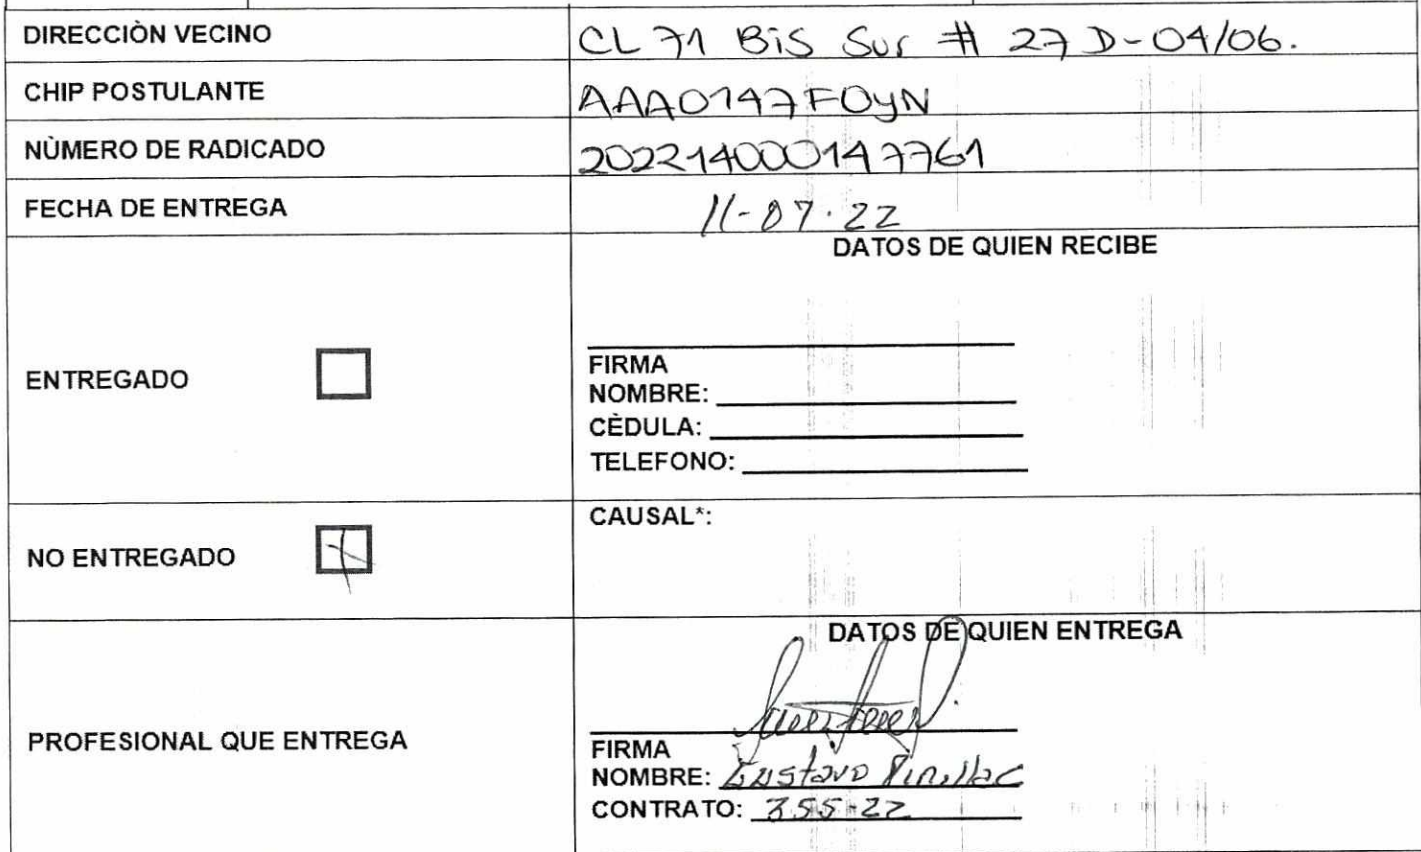 DIRECCIÒN VECINO CL 71 Bis Sur # 27 D-04/06.
CHIP POSTULANTE AAA0147FOYN
NÙMERO DE RADICADO 202214000147761
FECHA DE ENTREGA 11-07-22
DATOS DE QUIEN RECIBE
ENTREGADO
FIRMA
NOMBRE:
CÈDULA:
TELEFONO:
NO ENTREGADO
CAUSAL*:
DATOS DE QUIEN ENTREGA
PROFESIONAL QUE ENTREGA
FIRMA
NOMBRE: Gustavo Pinilla C
CONTRATO: 355-22